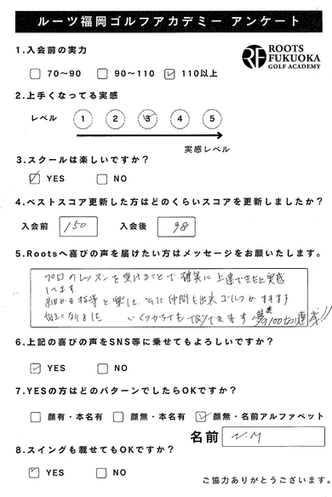 ルーツ福岡ゴルフアカデミー アンケート
1.入会前の実力
ROOTS
FUKUOKA
GOLF ACADEMY
70〜90 90〜110 110以上
2.上手くなってる実感
レベル 1 2 3 4 5
実感レベル
3.スクールは楽しいですか？
YES NO
4.ベストスコア更新した方はどのくらいスコアを更新しましたか？
入会前 150 入会後 98
5.Rootsへ喜びの声を届けたい方はメッセージをお願いします。
プロのレッスンを受けることで確実に上達できたと実感
してます。
仲間も出来ゴルフがますます
100切り達成!!
6.上記の喜びの声をSNS等に乗せてもよろしいですか？
YES NO
7.YESの方はどのパターンでしたらOKですか？
顔有・本名有 顔無・本名有 顔無・名前アルファベット
名前 N.M
8.スイングも載せてもOKですか？
YES NO
ご協力ありがとうございます。